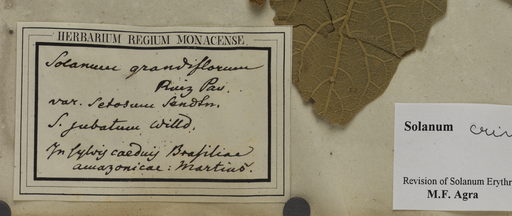 HERBARIUM REGIUM MONACENSE.
Solanum grandiflorum
Ruiz Pav.
var. Setosum Sendtn.
S. jubatum Willd.
In sylvis caeduis Brasiliae
amazonicae: Martius.
Solanum crin
Revision of Solanum Erythr
M.F. Agra